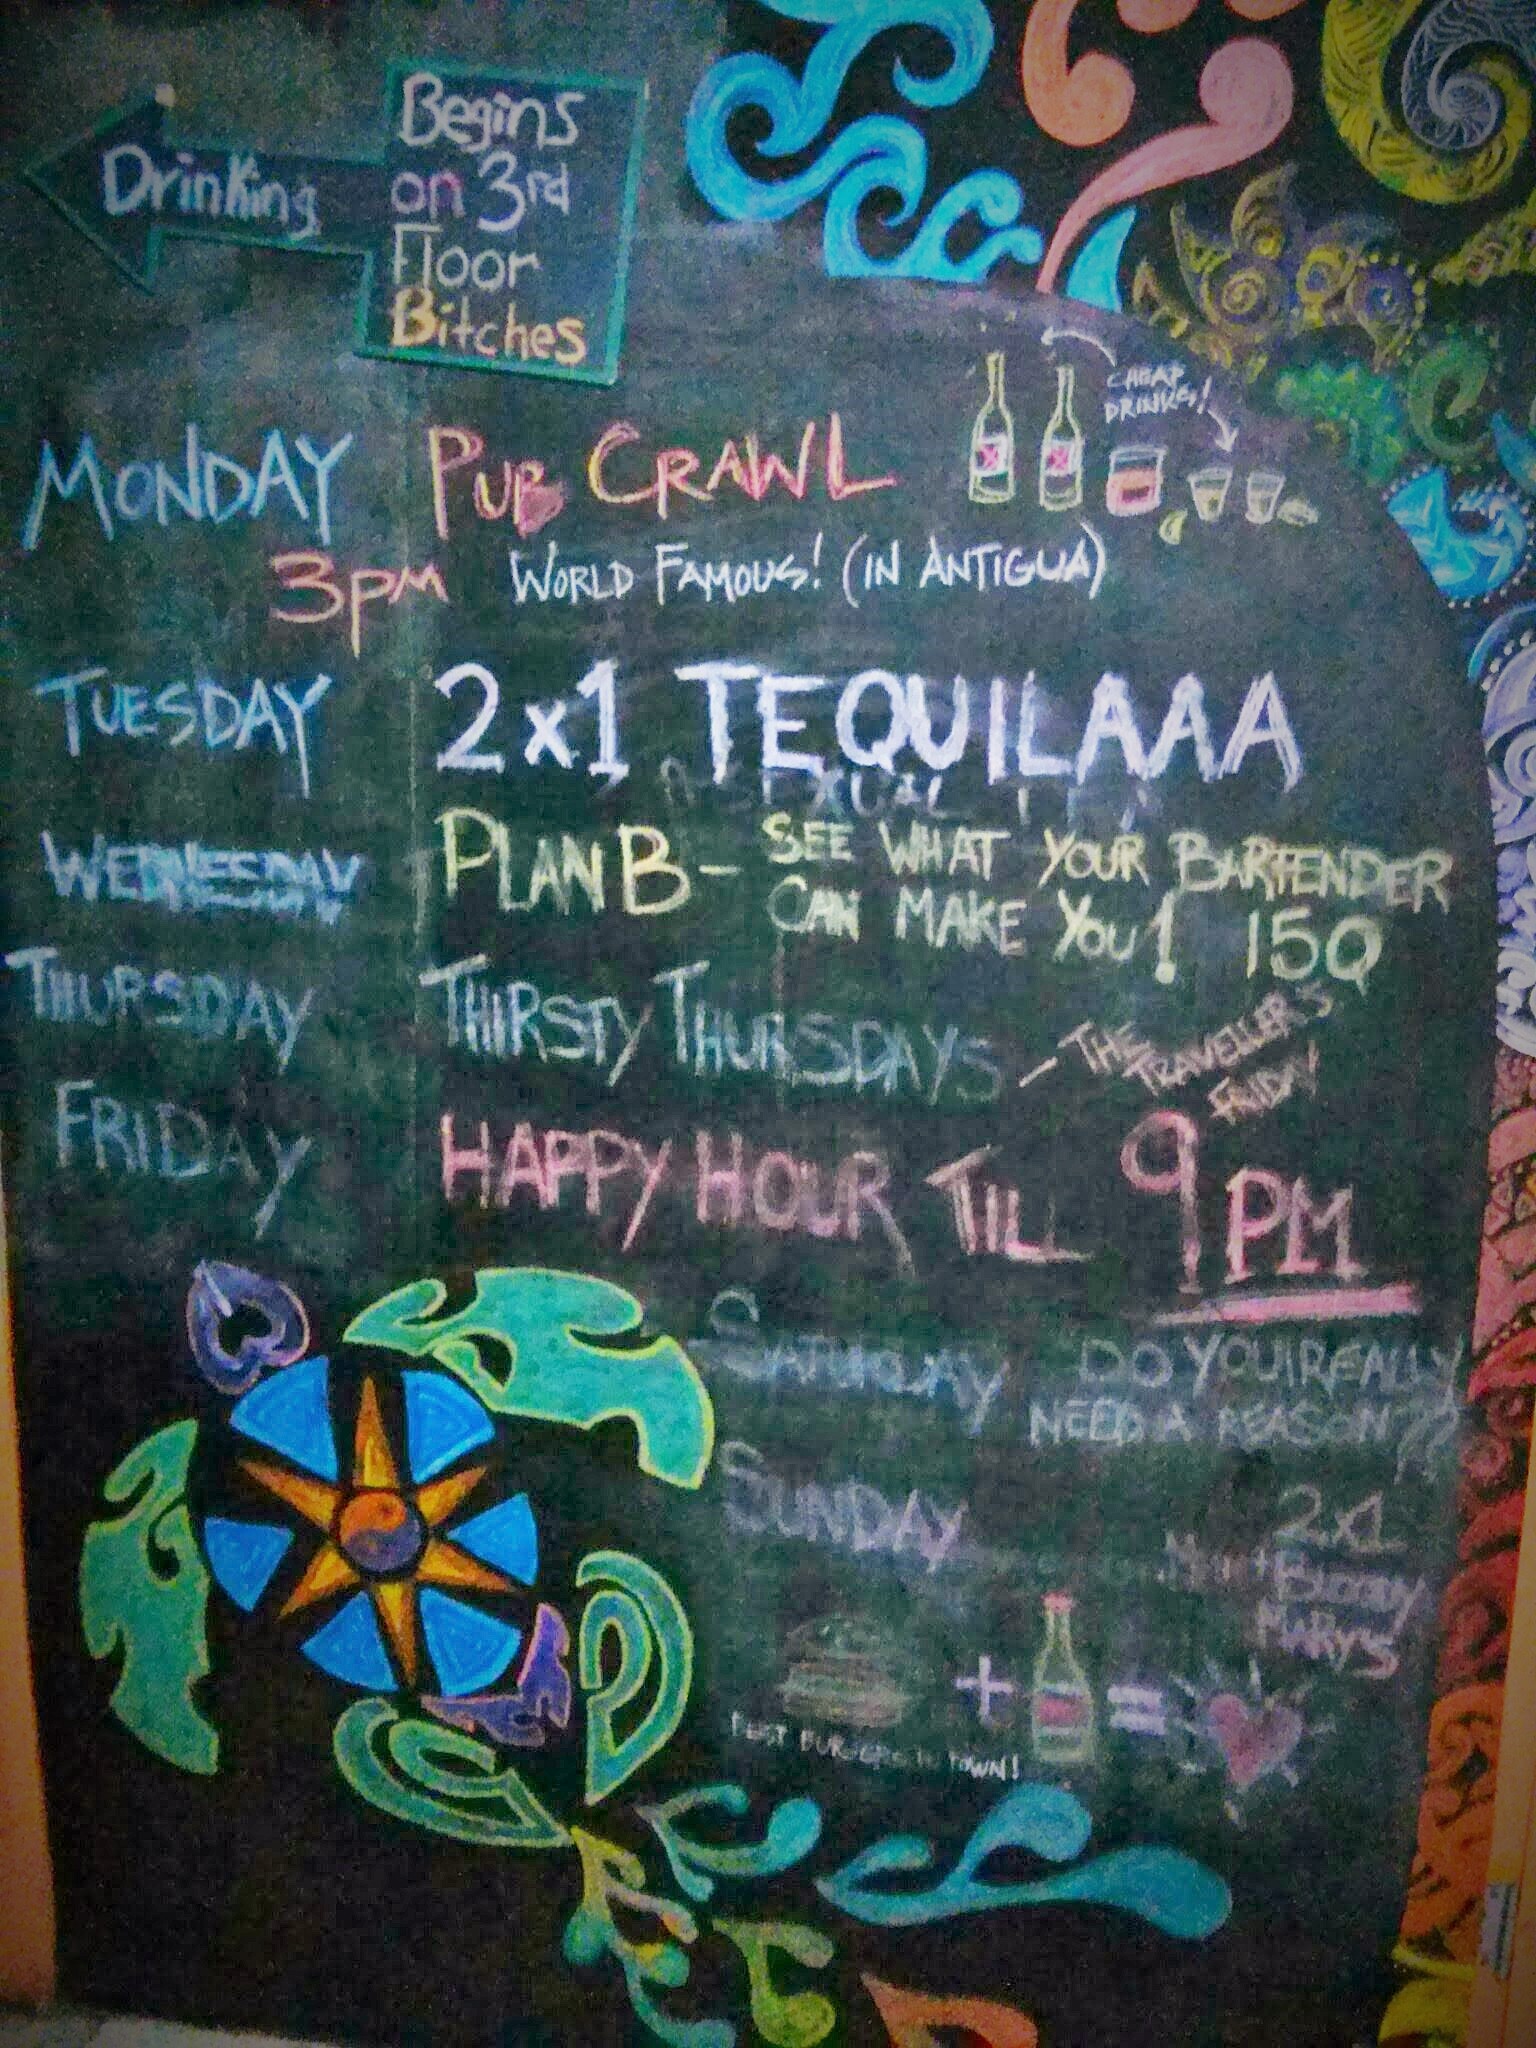 Begins
on 3rd
Floor
Bitches
Drinking
CHEAP
DRINKS!
MONDAY PUB CRAWL
3PM WORLD FAMOUS! (IN ANTIGUA)
TUESDAY 2x1 TEQUILAAA
WEDNESDAY PLAN B - SEE WHAT YOUR BARTENDER
CAN MAKE YOU! 15Q
THURSDAY THIRSTY THURSDAYS - THE
TRAVELLER'S
FRIDAY
FRIDAY HAPPY HOUR TILL 9PM
SATURDAY DO YOU REALLY
NEED A REASON??
SUNDAY 2x1
BLOODY
MARY'S
+ =
BEST BURGERS IN TOWN!